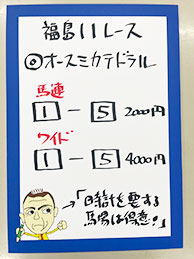 福島11レース
◎オースミカテドラル
馬連
1-5 2000円
ワイド
1-5 4000円
→「時計を要する
馬場は得意!」